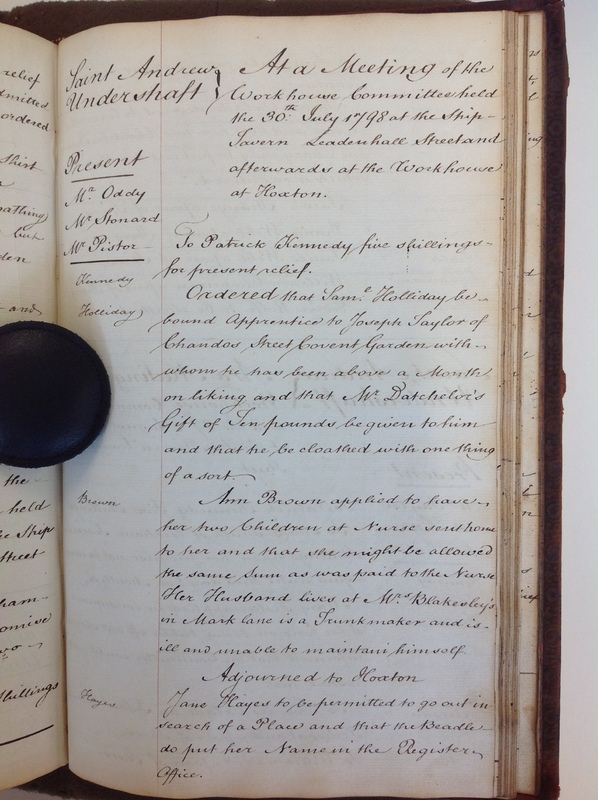 relief
dmitted
ordered
Shirt
a
pathing
but
den
and
the
held
he Ship
Street
ham-
omise
wo
shillings
Saint Andrew
Undershaft
Present
Mr. Oddy
Mr. Stonard
Mr. Pistor
Kennedy
Holliday
Brown
Hayes
At a Meeting of the
Workhouse Committee held
the 30th July 1798 at the Ship-
Tavern Leadenhall Street and
afterwards at the Workhouse
at Hoxton.
To Patrick Kennedy five shillings-
for present relief.
Ordered that Saml. Holliday be-
bound Apprentice to Joseph Taylor of
Chandos Street Covent Garden with-
whom he has been above a Month
on liking and that Mr. Datchelor's
Gift of Ten pounds be given to him
and that he be cloathed with one thing
of a sort.
Ann Brown applied to have
her two Children at Nurse sent home
to her and that she might be allowed
the same Sum as was paid to the Nurse
Her Husband lives at Mrs. Blakesley's
in Mark lane is a Trunkmaker and is-
ill and unable to maintain himself
Adjourned to Hoxton
Jane Hayes to be permitted to go out in
search of a Place and that the Beadle-
do put her Name in the Register
Office.